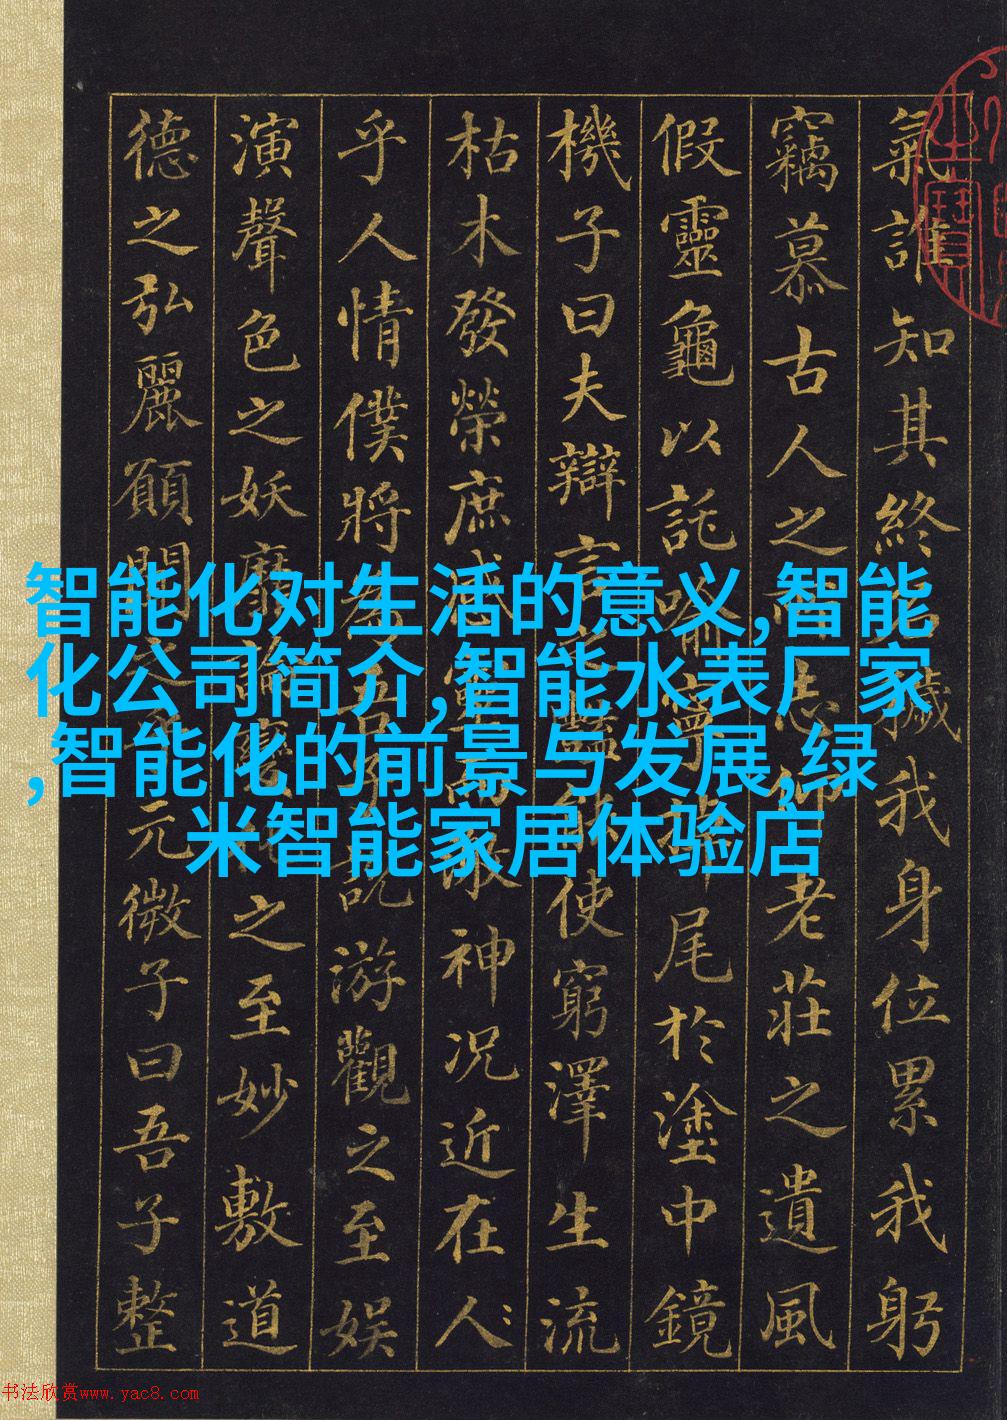 氣誰知其終穢我身位累我躬
竊慕古人之所志仰老莊之遺風
假靈龜以託喻寧掉尾於塗中鏡
機子曰夫辯言之豔能使窮澤生流
枯木發榮庶感靈而激神況近在人
乎人情僕將為吾子說游觀之至娛
演聲色之妖靡論變化之至妙敷道
德之弘麗願聞之乎元微子曰吾子整
智能化对生活的意义,智能
化公司简介,智能水表厂家
,智能化的前景与发展,绿
米智能家居体验店
书法欣赏www.yac8.com